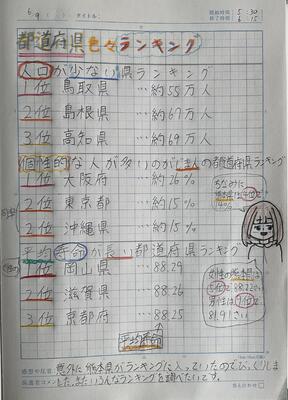 6 9
タイトル:
開始時間: 5:30
終了時間: 6:15
都道府県色々ランキング
人口が少ない県ランキング
1位 鳥取県 …約55万人
2位 島根県 …約67万人
3位 高知県 …約69万人
個性的な人が多いのがじまんの都道府県ランキング
1位 大阪府 …約26%
2位 東京都 …約15%
2位 沖縄県 …約15%
同率
ちなみに
熊本県は
4位で
14%
平均寿命が長い都道府県ランキング
女性の
1位 岡山県 …88.29
2位 滋賀県 …88.26
3位 京都府 …88.25
平均寿命
女性の熊本県は
5位で88.22さい
男性は7位で
81.91さい
感想や反省
意外に熊本県がランキングに入っていたのでびっくりしま
保護者コメント
した。またいろんなランキングを調べたいです。